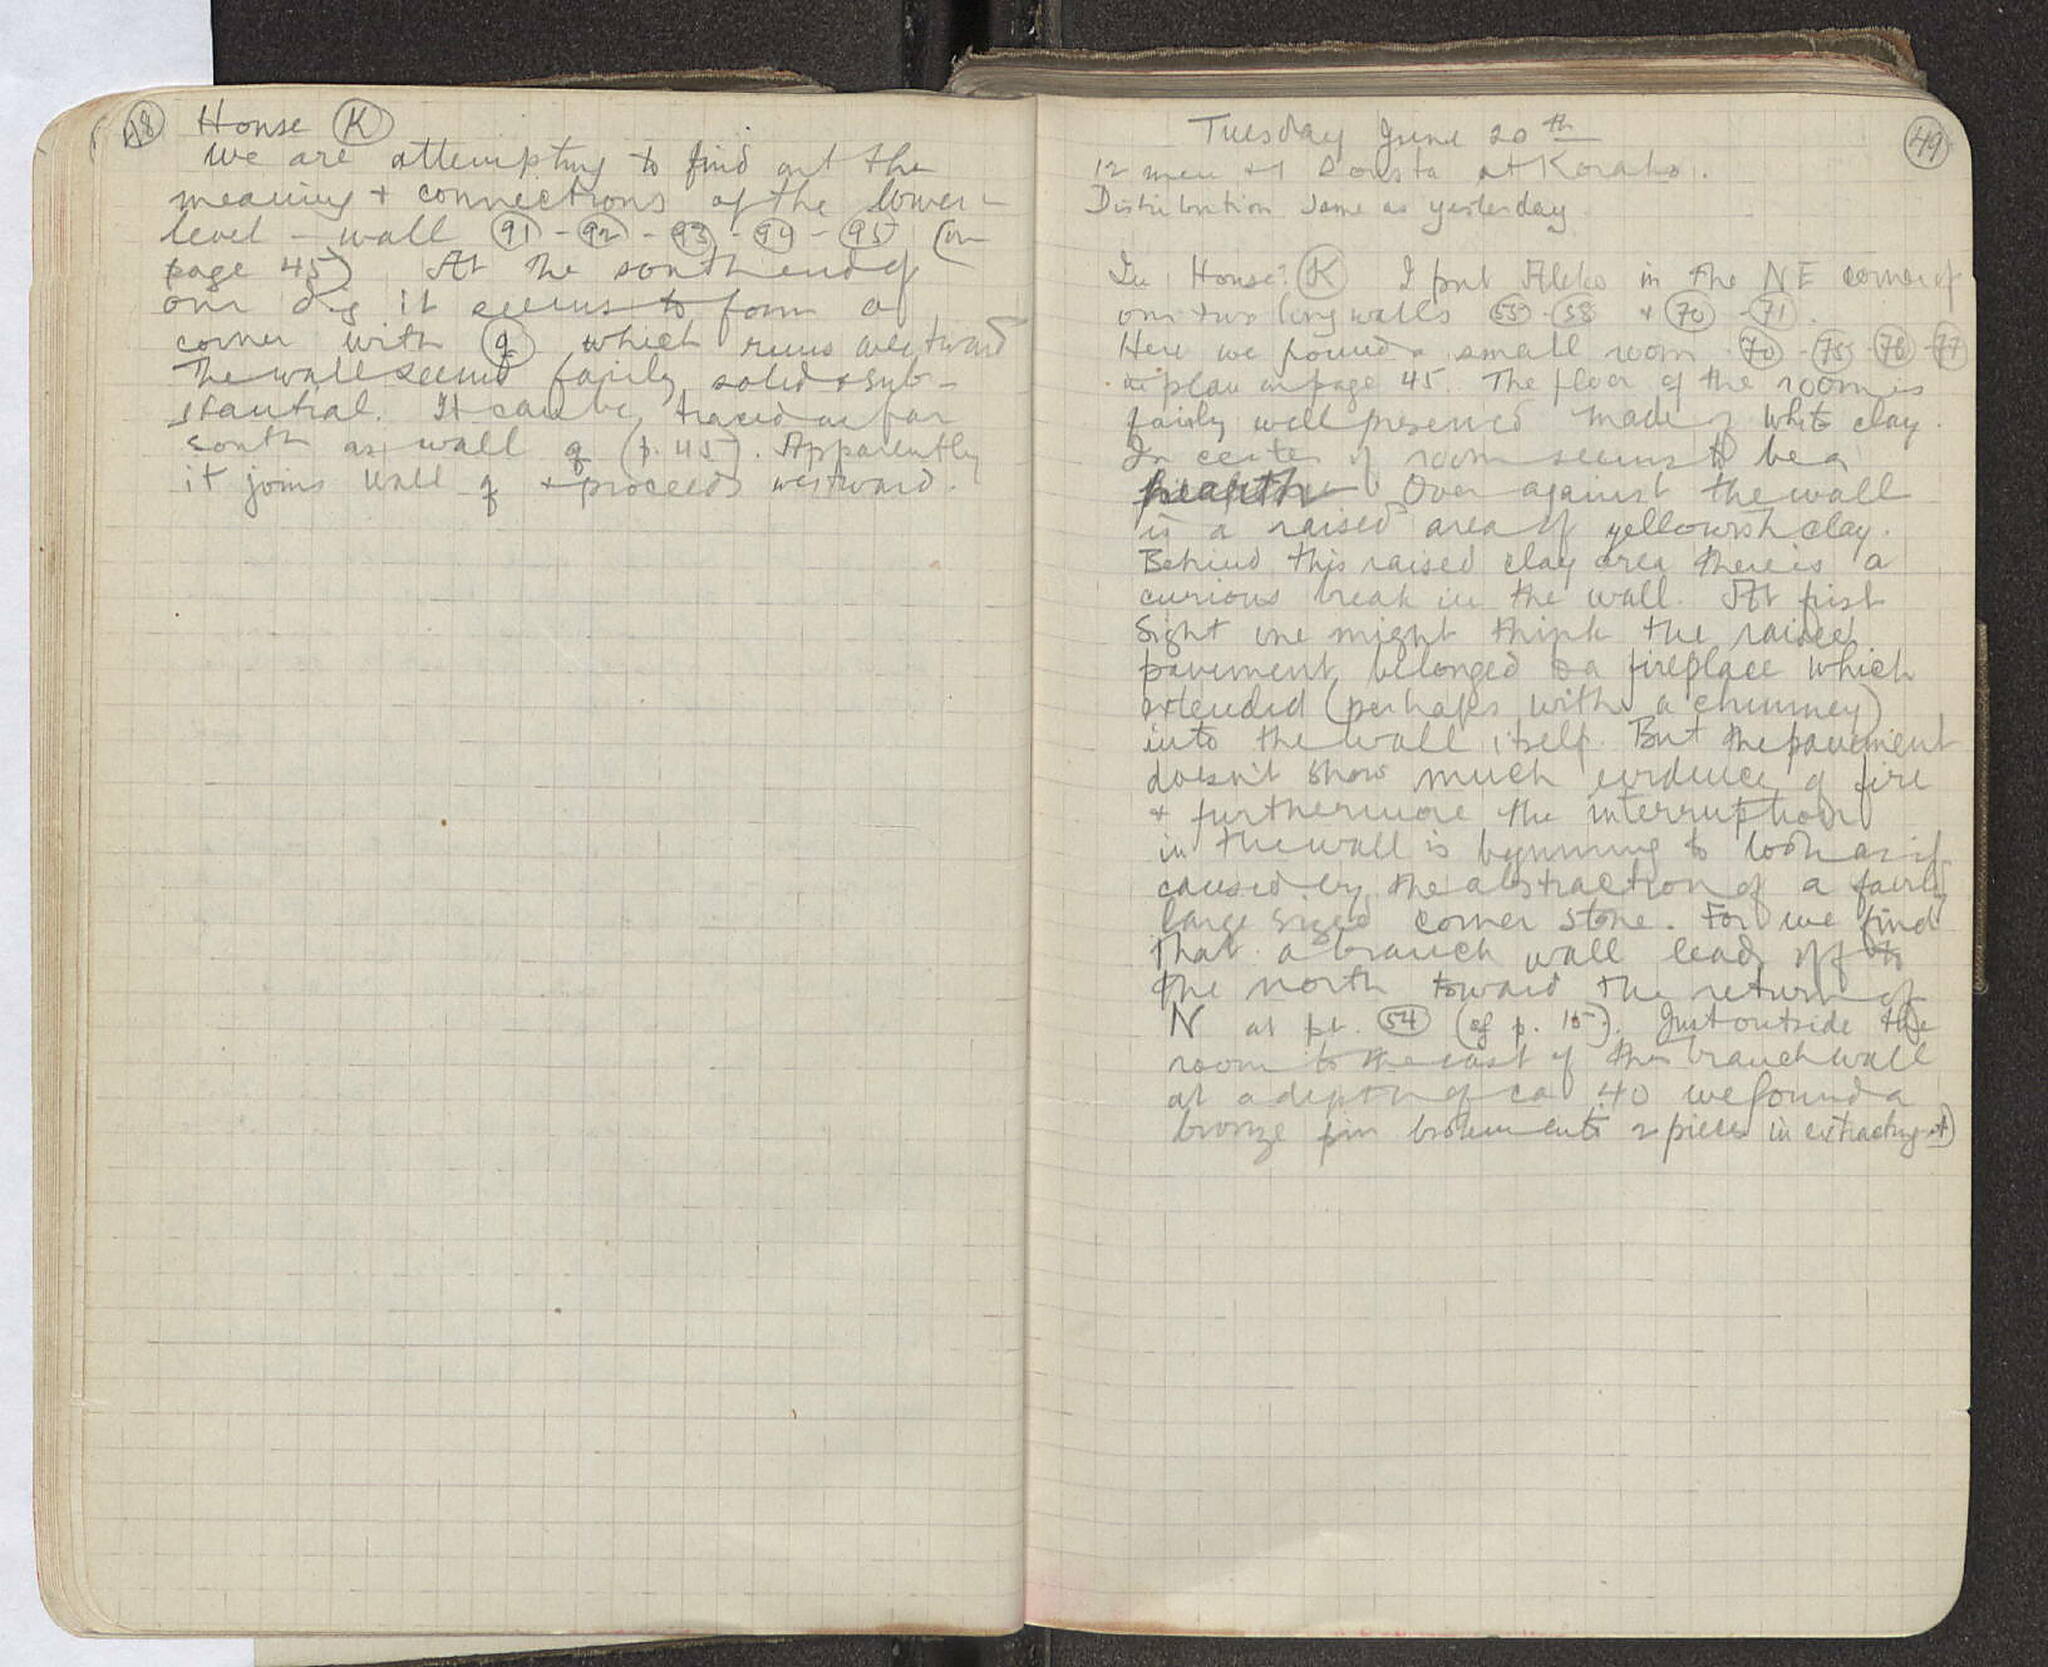 48 House K
We are attempting to find out the
meaning + connections of the lower-
level - wall 91 - 92 - 93 - 94 - 95 (on
page 45) At the south end of
our dig it seems to form a
corner with q which runs westward
The wall seems fairly solid & sub-
stantial. It can be traced as far
south as wall q (p. 45). Apparently
it joins wall q & proceeds westward.
49
Tuesday June 20th
12 men + 1 at Korako.
Distribution same as yesterday
In House K I put Aleko in the NE corner of
our two long walls 55 - 58 + 70 - 71.
Here we found a small room 70 - 75 - 76 - 77
in plan on page 45. The floor of the room is
fairly well preserved made of white clay.
In center of room seems to be a
hearth. Over against the wall
is a raised area of yellowish clay.
Behind this raised clay area there is a
curious break in the wall. At first
sight one might think the raised
pavement belonged to a fireplace which
extended (perhaps with a chimney)
into the wall itself. But the pavement
doesn't show much evidence of fire
+ furthermore the interruption
in the wall is beginning to look as if
caused by the abstraction of a fairly
large sized corner stone. For we find
that a branch wall leads off to
the north toward the return of
N at pt. 54 (cf p. 15). Just outside the
room to the east of this branch wall
at a depth of ca 40 we found a
bronze pin broken into 2 pieces in extracting it)